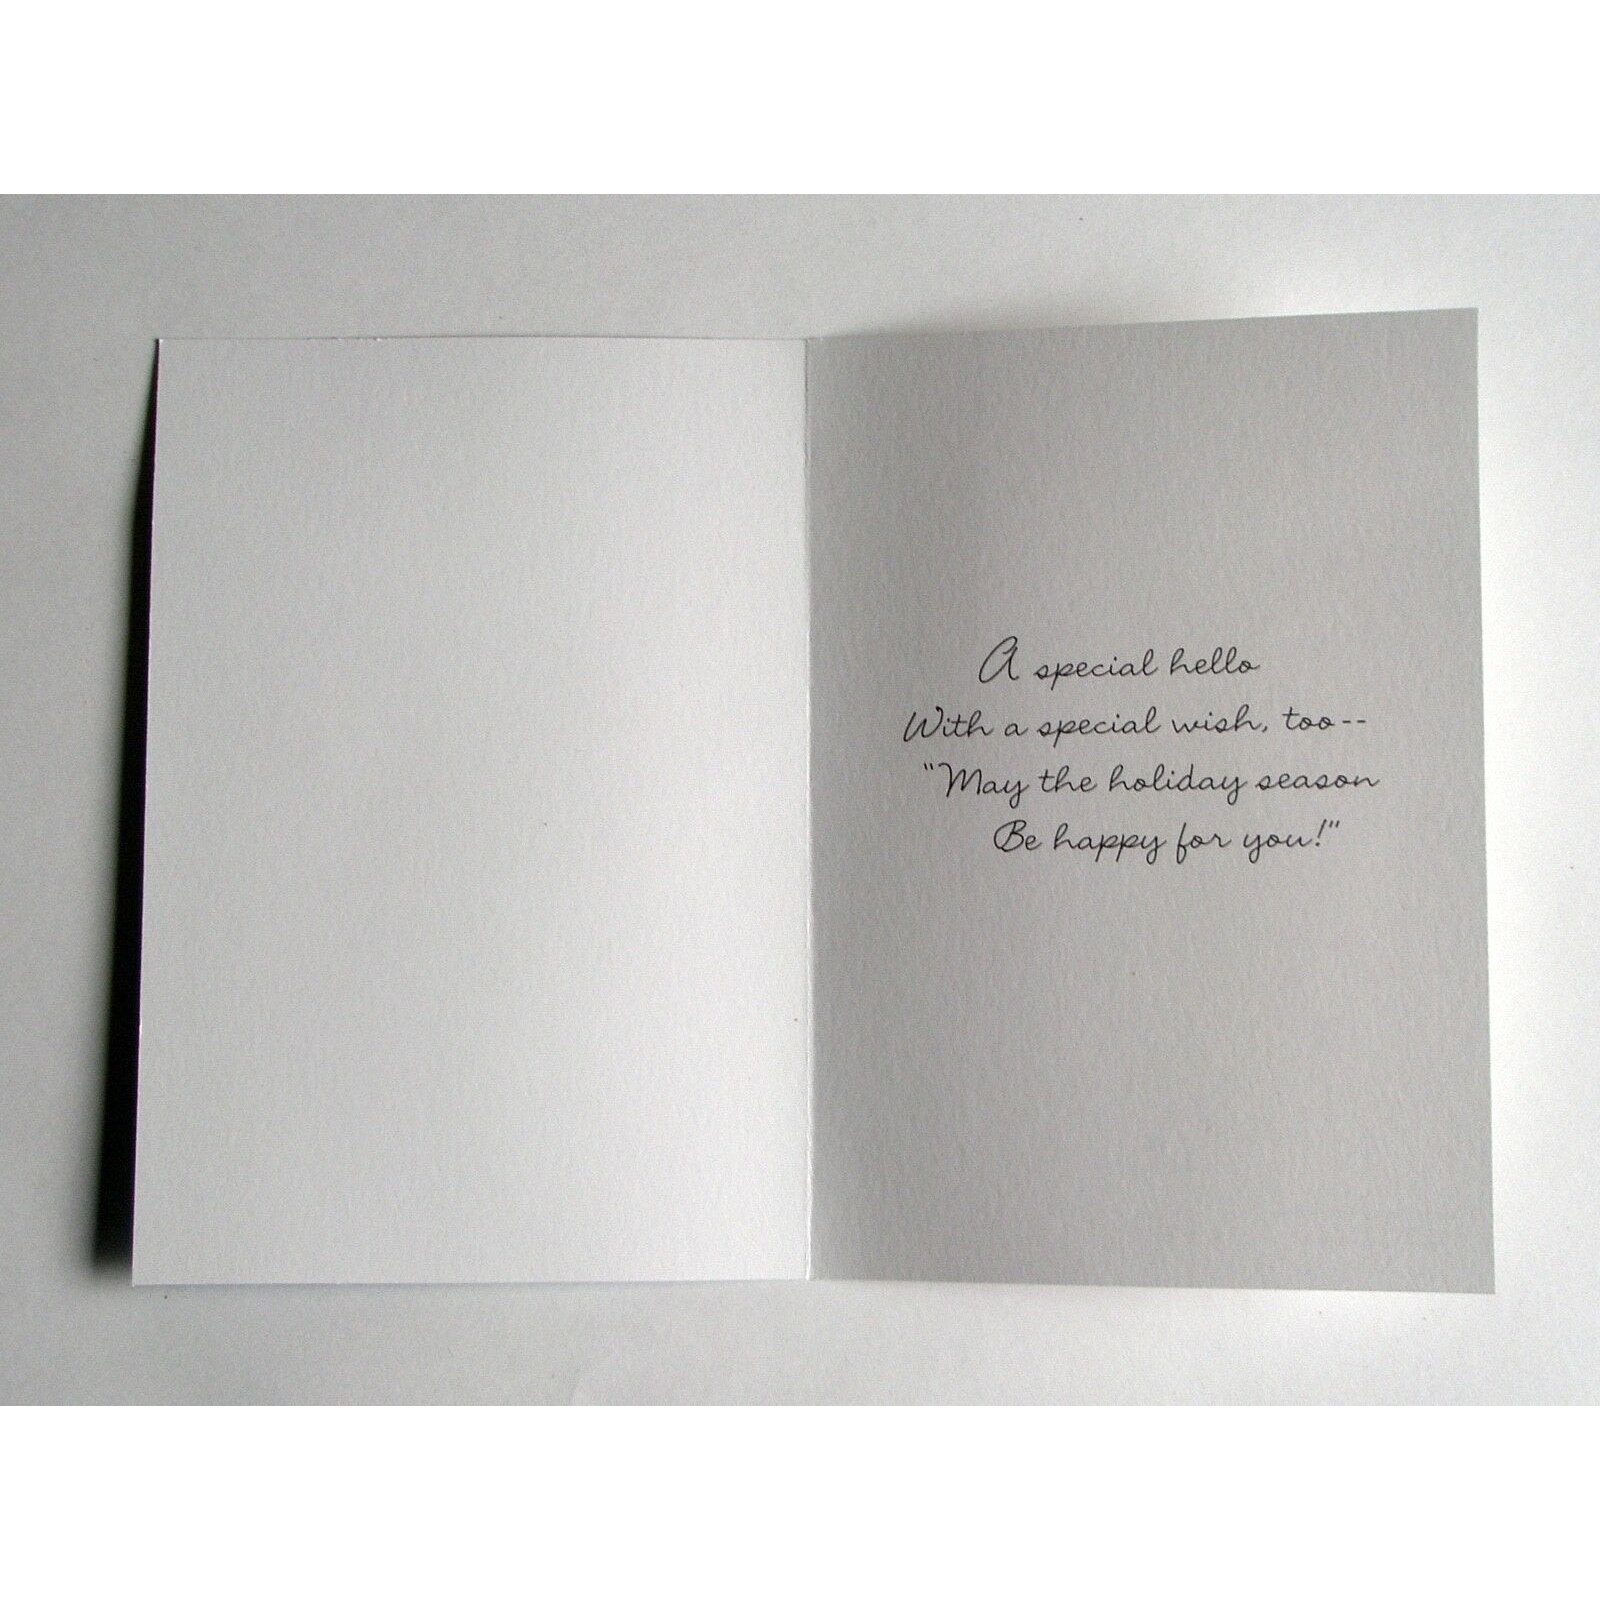 A special hello
With a special wish, too--
"May the holiday season
Be happy for you!"